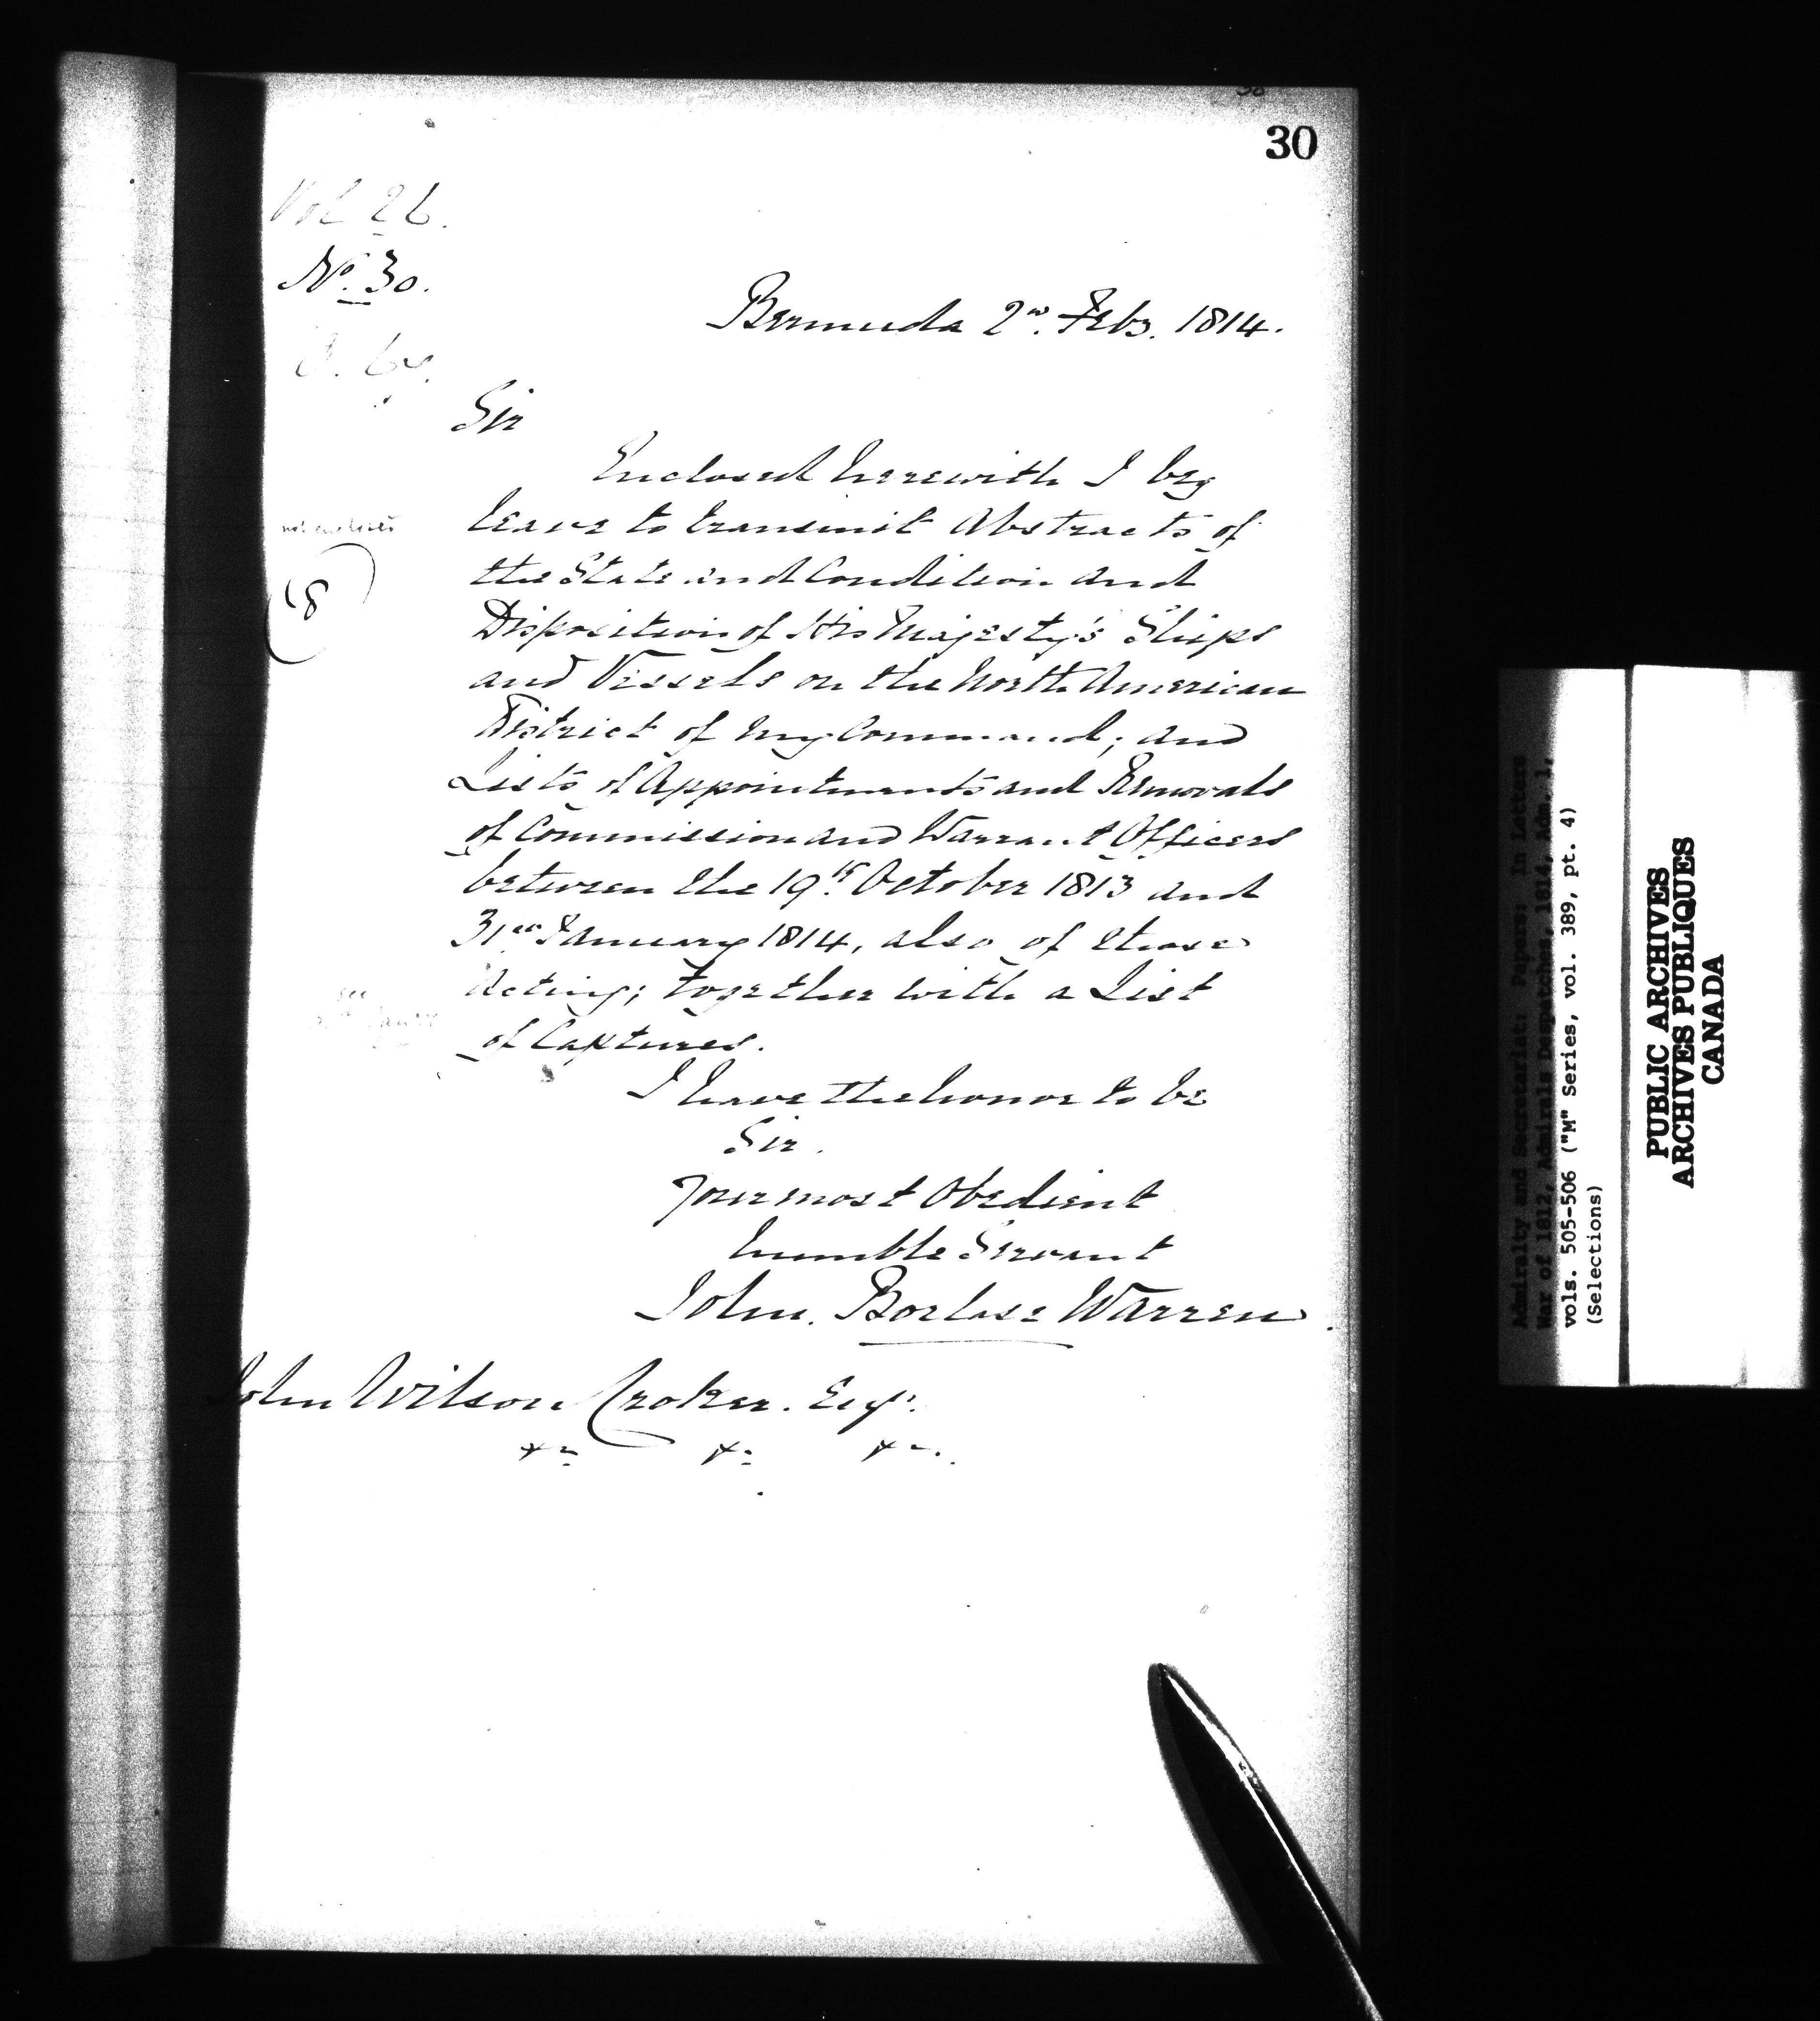 30
Vol 26.
No. 30.
Bermuda 2nd. Feby. 1814.
Sir
Enclosed herewith I beg
leave to transmit Abstracts of
the State and Condition and
Disposition of His Majesty's Ships
and Vessels on the North American
District of my Command; and
Lists of Appointments and Removals
of Commission and Warrant Officers
between the 19th October 1813 and
31st January 1814, also of those
Acting; together with a List
of Captures.
I have the honor to be
Sir.
Your most Obedient
humble Servant
John. Borlase Warren.
John Wilson Croker. Esqr.
not enclosed
(8)
see
Admiralty and Secretariat: Papers: In Letters
War of 1812, Admirals Despatches, 1814, Adm. 1,
vols. 505-506 ("M" Series, vol. 389, pt. 4)
(Selections)
PUBLIC ARCHIVES
ARCHIVES PUBLIQUES
CANADA